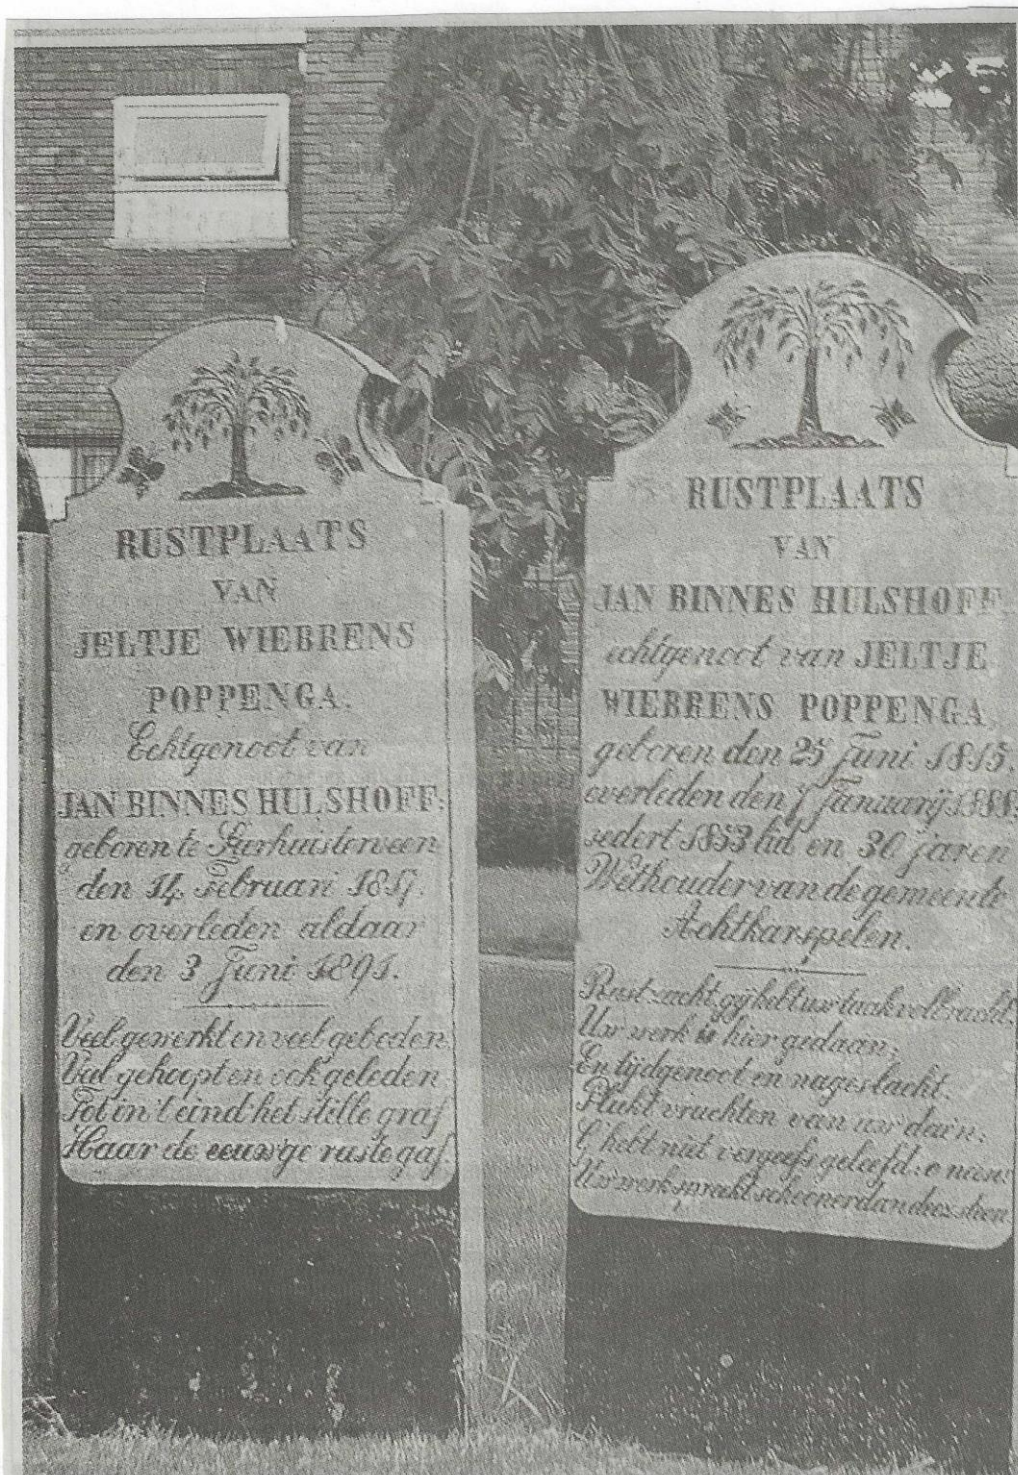 RUSTPLAATS
VAN
JELTJE WIEBRENS
POPPENGA.
Echtgenoot van
JAN BINNES HULSHOFF:
geboren te Surhuisterveen
den 14 Februari 1817.
en overleden aldaar
den 3 Juni 1891.
Veel gewerkt en veel gebeden.
Veel gehoopt en ook geleden
Tot in 't eind' het stille graf
Haar de eeuw'ge ruste gaf.
RUSTPLAATS
VAN
JAN BINNES HULSHOFF
echtgenoot van JELTJE
WIEBRENS POPPENGA.
geboren den 25 Juni 1815.
overleden den Januarij
sedert 1853 lid en 30 jaren
Wethouder van de gemeente
Achtkarspelen.
Rust zacht, gij hebt uw taak volbracht,
Uw werk is hier gedaan;
En tijdgenoot en nageslacht.
Plukt vruchten van uw daên;
G' hebt niet vergeefs geleefd: o neen!
Uw werk spreekt schooner dan deez steen